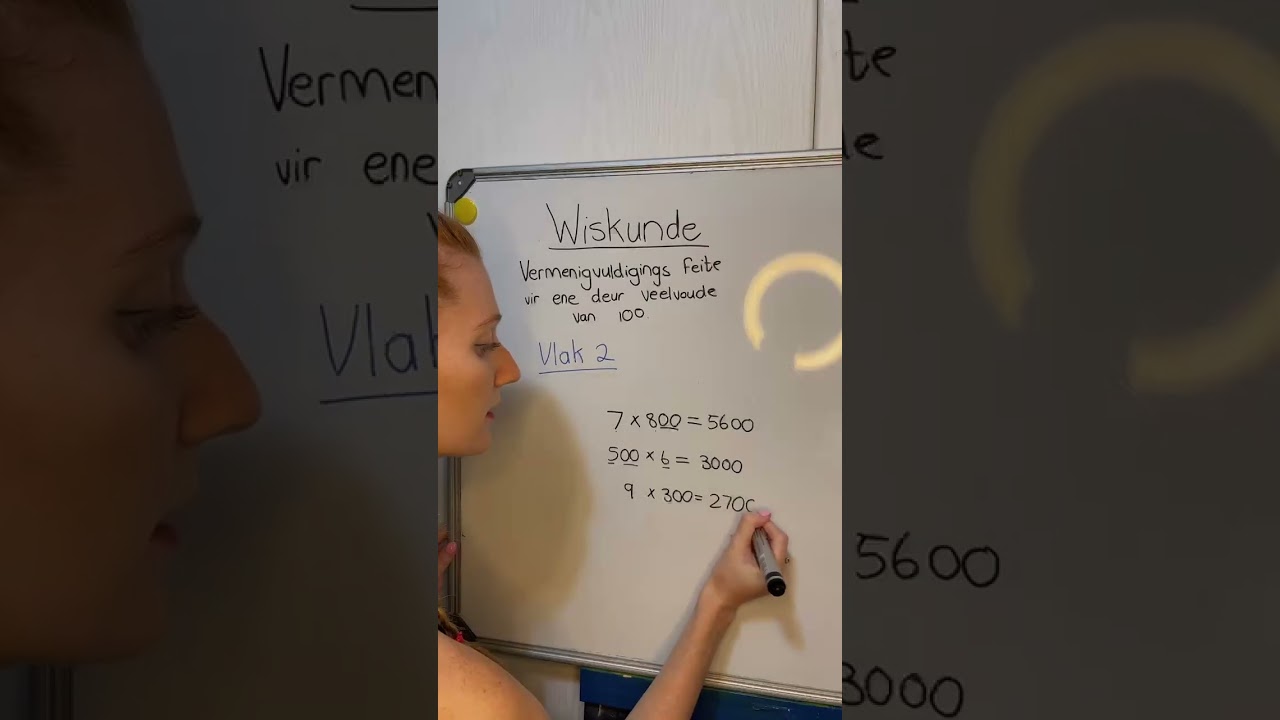 Wiskunde
Vermenigvuldigings feite
vir ene deur veelvoude
van 100.
Vlak 2
7 x 800 = 5600
500 x 6 = 3000
9 x 300 = 2700